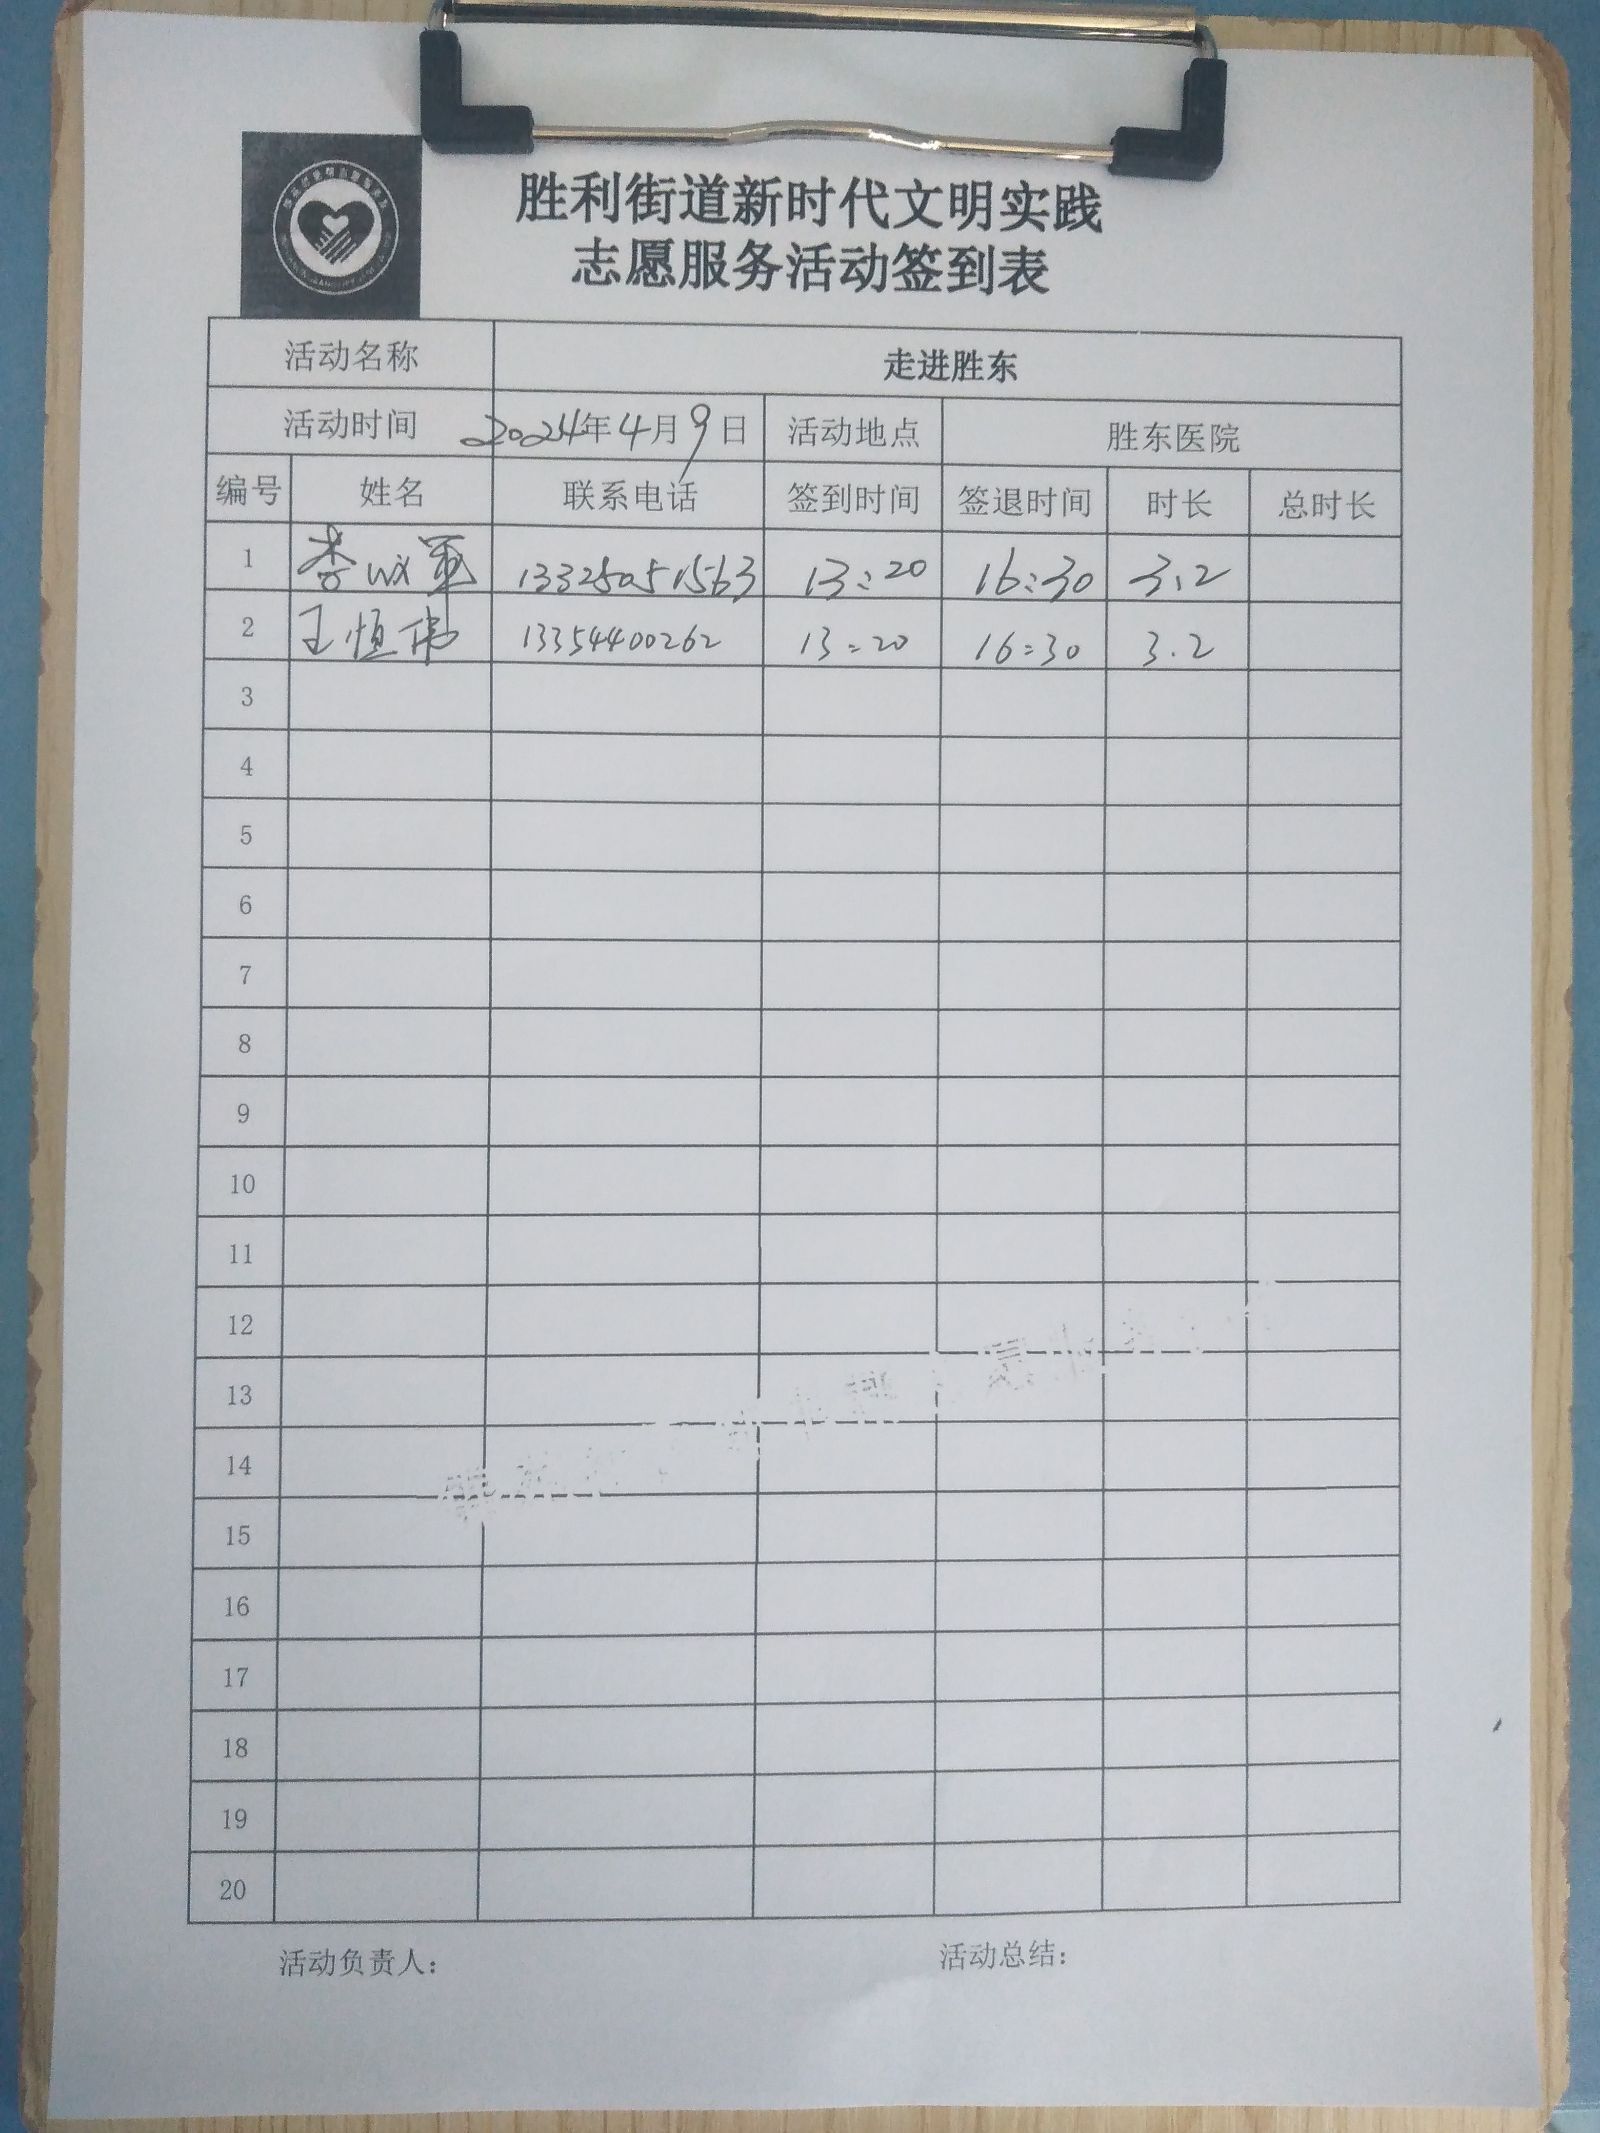 胜利街道新时代文明实践
志愿服务活动签到表
活动名称 走进胜东
活动时间 2024年4月9日 活动地点 胜东医院
编号 姓名 联系电话 签到时间 签退时间 时长 总时长
1 李 军 13325051563 13:20 16:30 3.2
2 王恒伟 13354400262 13:20 16:30 3.2
3
4
5
6
7
8
9
10
11
12
13
14
15
16
17
18
19
20
活动负责人： 活动总结：